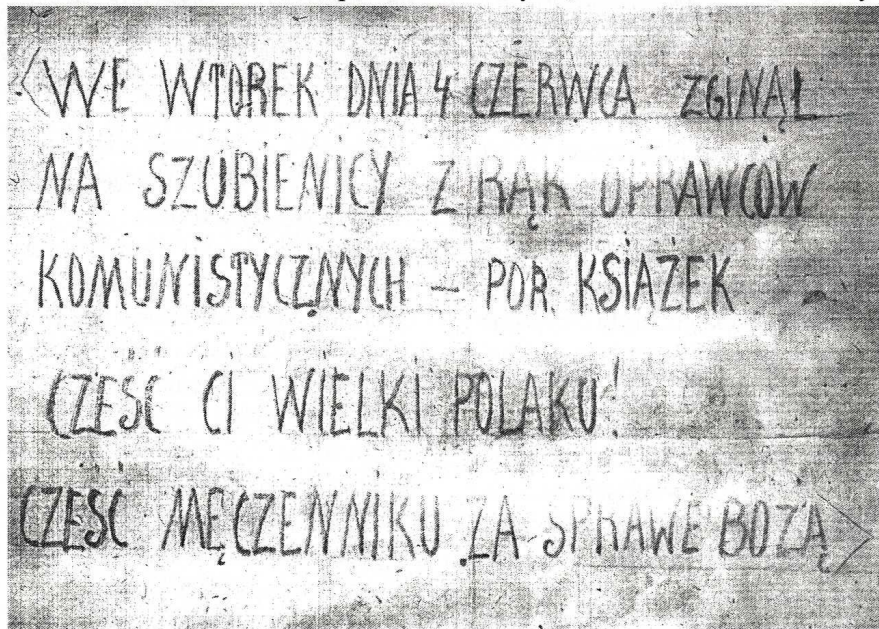 WE WTOREK DNIA 4 CZERWCA ZGINĄŁ
NA SZUBIENICY Z RĄK OPRAWCÓW
KOMUNISTYCZNYCH – POR. KSIĄŻEK
CZEŚĆ CI WIELKI POLAKU!
CZEŚĆ MĘCZENNIKU ZA SPRAWĘ BOŻĄ